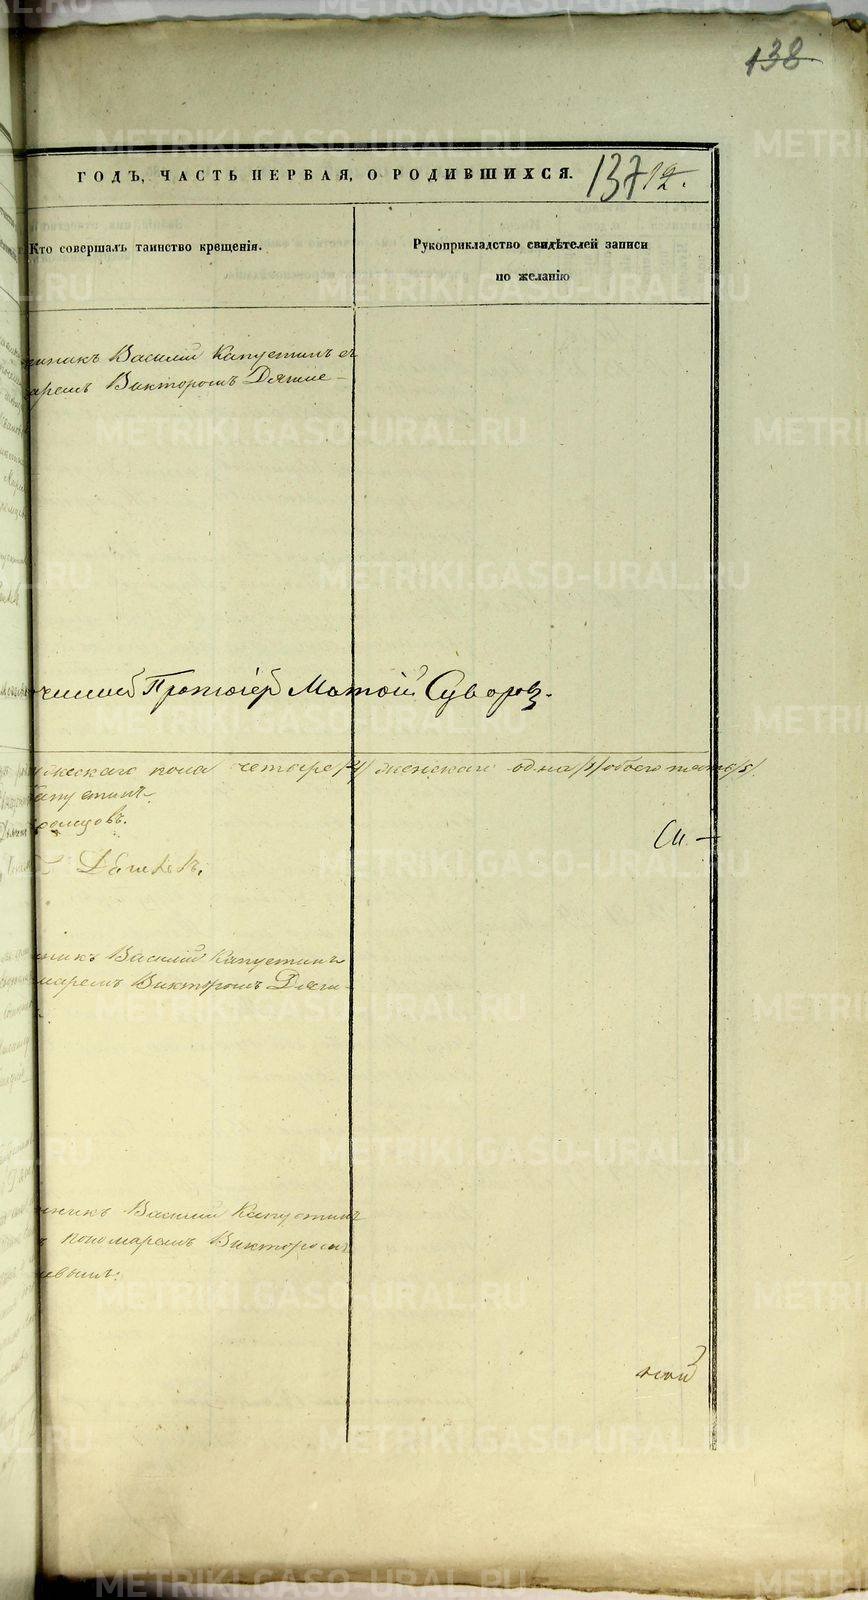 138
ГОДЪ, ЧАСТЬ ПЕРВАЯ, О РОДИВШИХСЯ. 137 12.
Кто совершалъ таинство крещенія.
Рукоприкладство свидѣтелей записи
по желанію
никъ Василій Капустинъ съ
аремъ Викторомъ Дягиле-
чинный Протоіерей Матөій Суворовъ.
жескаго пола четыре /4/ женскаго одна /1/ обоего пять /5/.
Капустинъ
Си-
никъ Василій Капустинъ
маремъ Викторомъ Дяги-
никъ Василій Капустинъ
ъ пономаремъ Викторомъ
евымъ.
METRIKI.GASO-URAL.RU